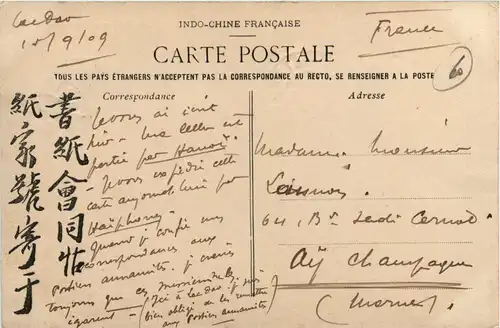 INDO-CHINE FRANÇAISE
Caobao
15/9/09
France
CARTE POSTALE
TOUS LES PAYS ÉTRANGERS N'ACCEPTENT PAS LA CORRESPONDANCE AU RECTO, SE RENSEIGNER A LA POSTE
60
Correspondance
書紙會同
紙家號寄于
Je vous ai écrit
hier - ma lettre est
partie par Hanoï.
- Je vous expédie cette
carte aujourd'hui par
Haïphong -
Quand je confie mes
correspondances aux
postiers annamites, je crains
toujours que ces messieurs les
égarent -
(Ici à je suis
bien obligé de les remettre
aux postiers annamites)
Adresse
Madame Monsieur
64, Bd Sadi Carnot
Aÿ Champagne
(Marne)